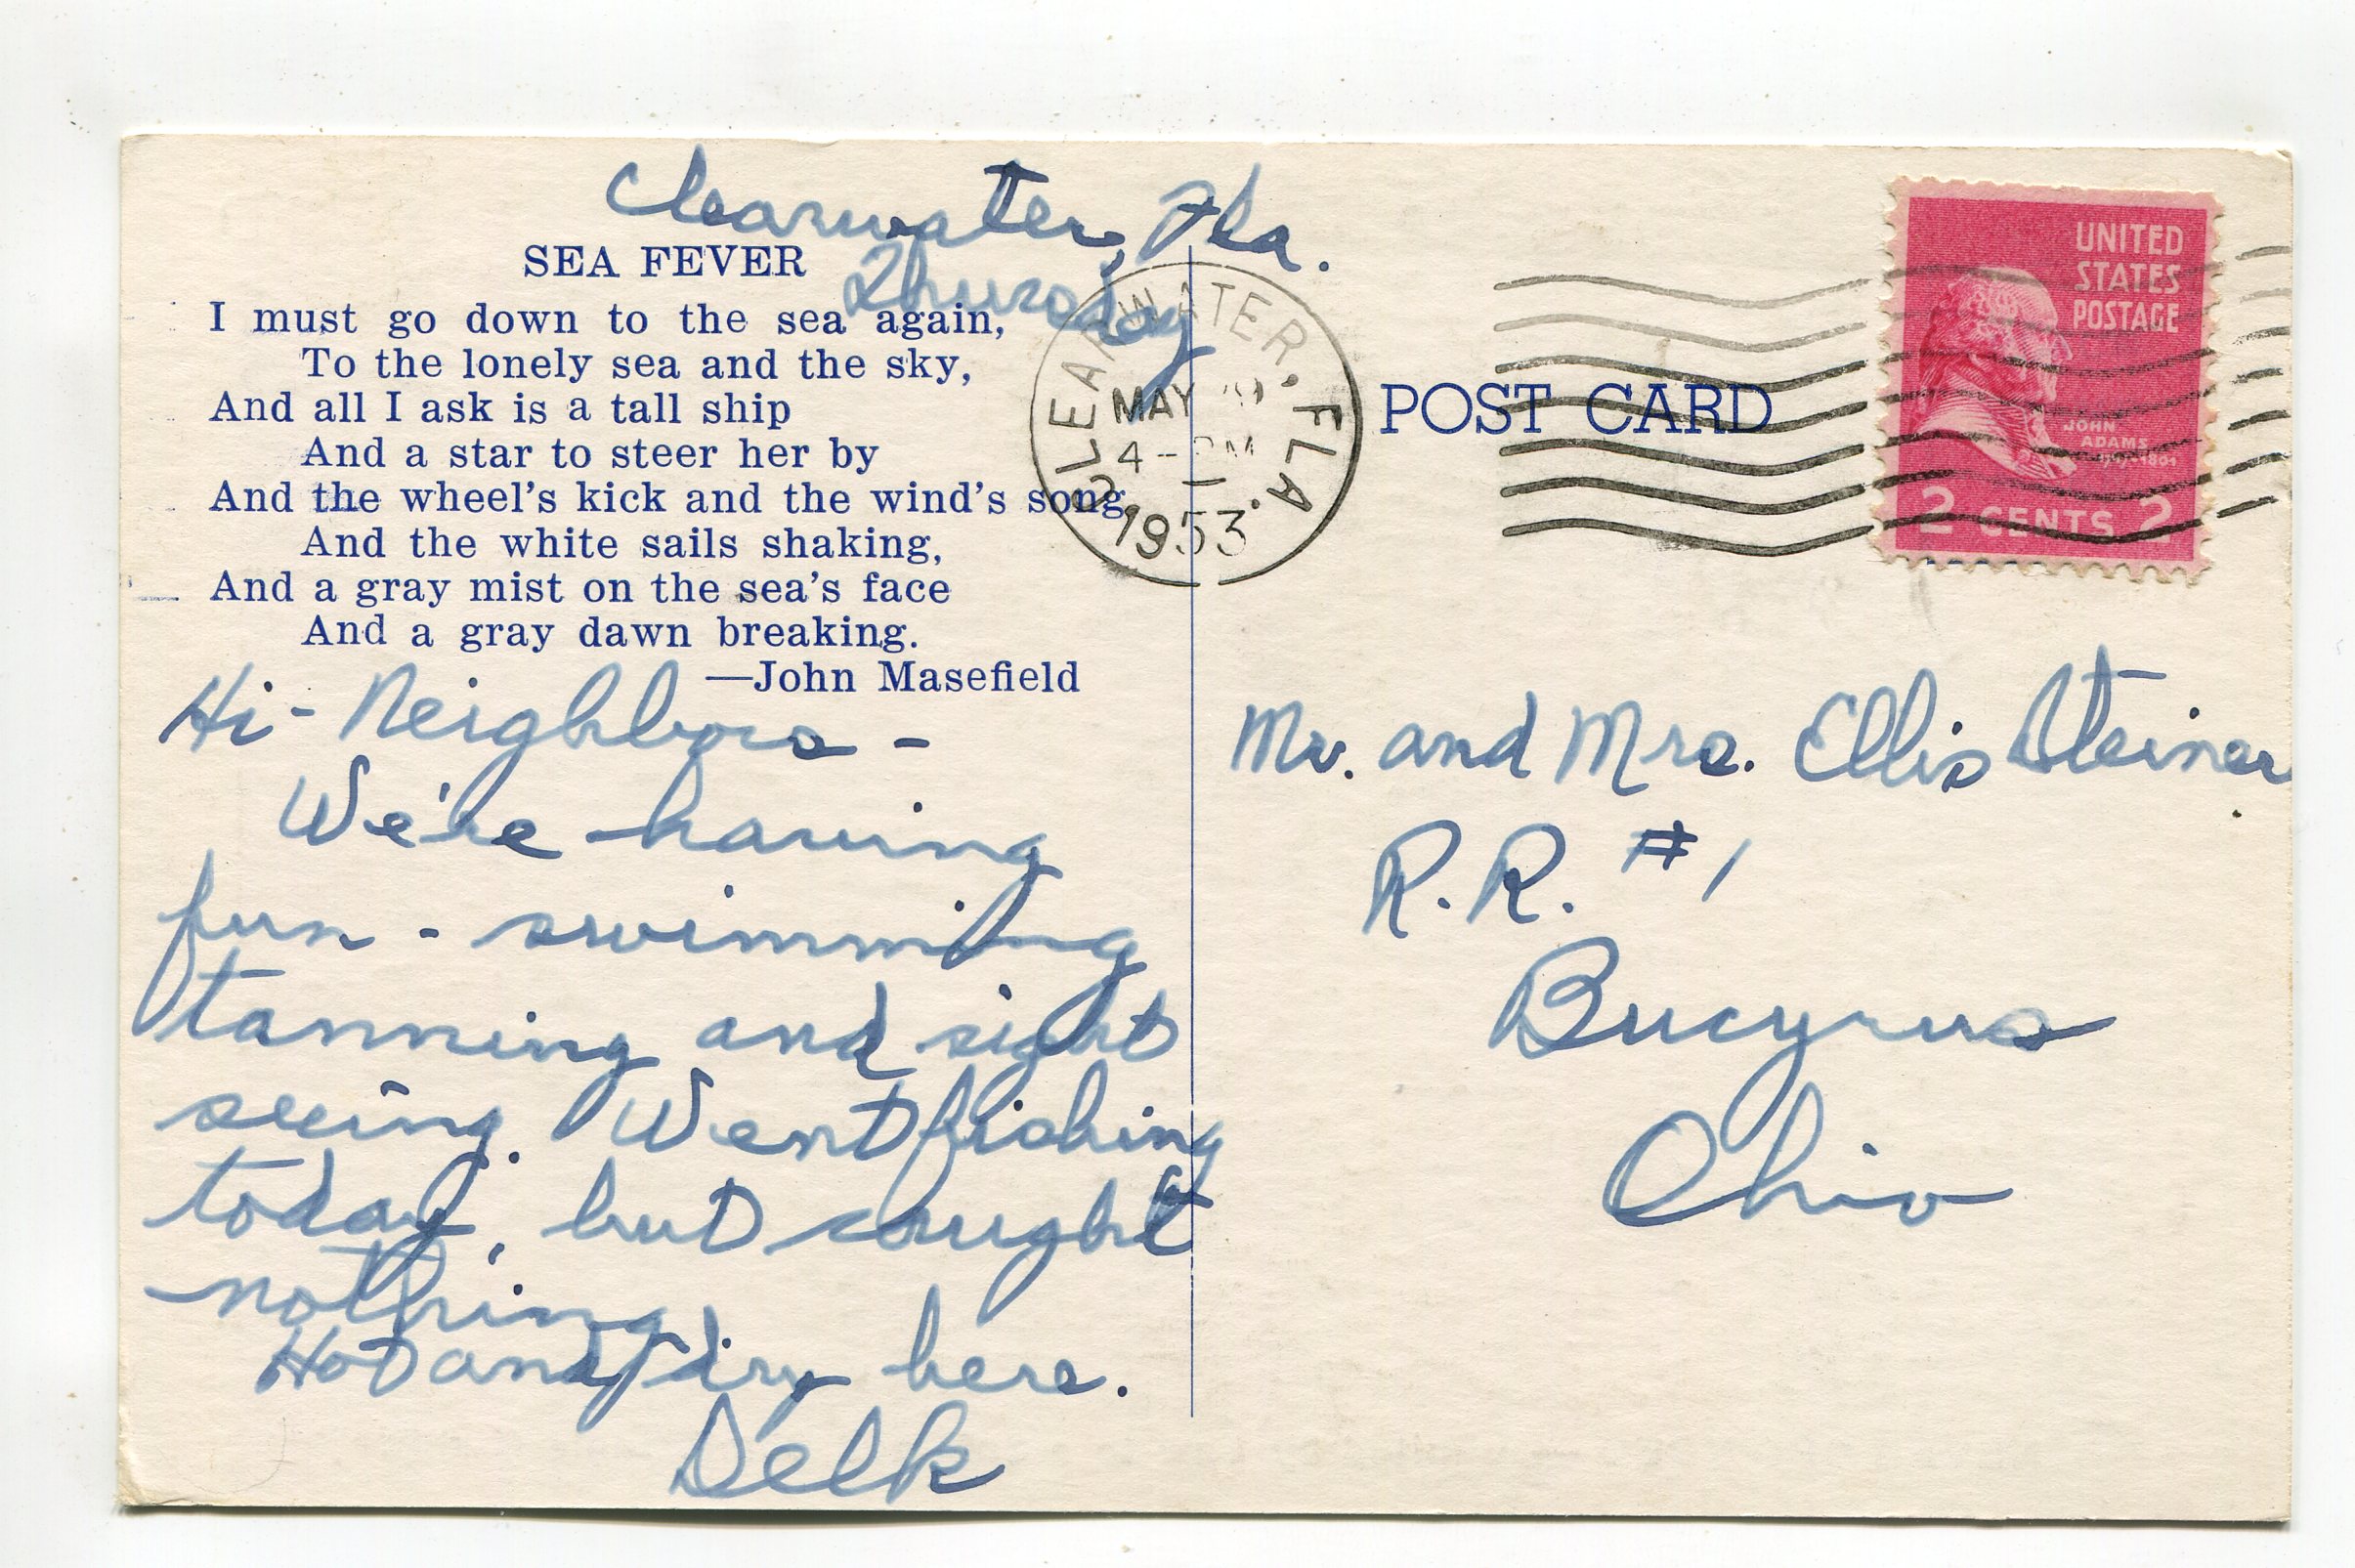 Clearwater, Fla.
Thursday
SEA FEVER
I must go down to the sea again,
To the lonely sea and the sky,
And all I ask is a tall ship
And a star to steer her by
And the wheel's kick and the wind's song
And the white sails shaking,
And a gray mist on the sea's face
And a gray dawn breaking.
—John Masefield
Hi - Neighbors -
We're having
fun - swimming
tanning and sight
seeing. Went fishing
today, but caught
nothing.
Hot and dry here.
Delk
CLEARWATER, FLA.
MAY
4 - PM
1953
POST CARD
UNITED
STATES
POSTAGE
JOHN
ADAMS
1797-1801
2 CENTS 2
Mr. and Mrs. Ellis Steiner
R.R. #1
Bucyrus
Ohio